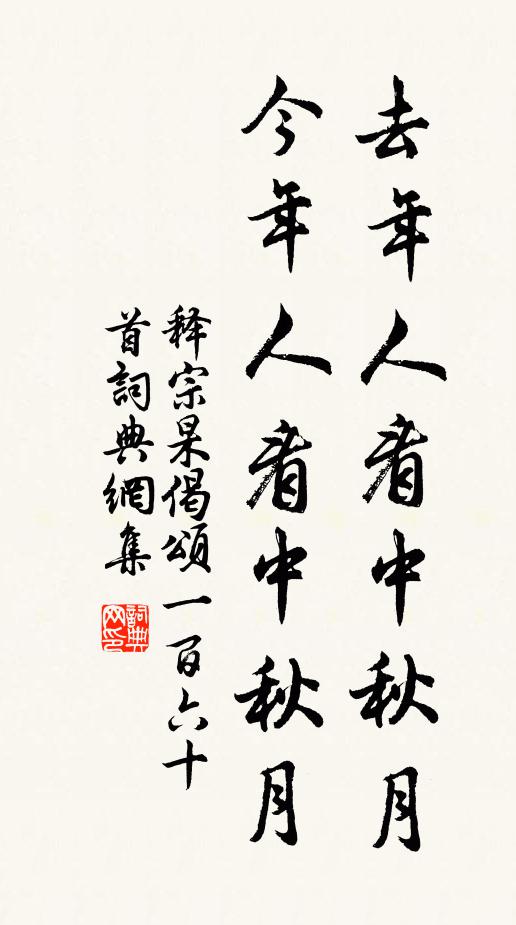 去年人看中秋月
今年人看中秋月
释宗杲偈頌一百六十
首詞典網集
詞典
网印